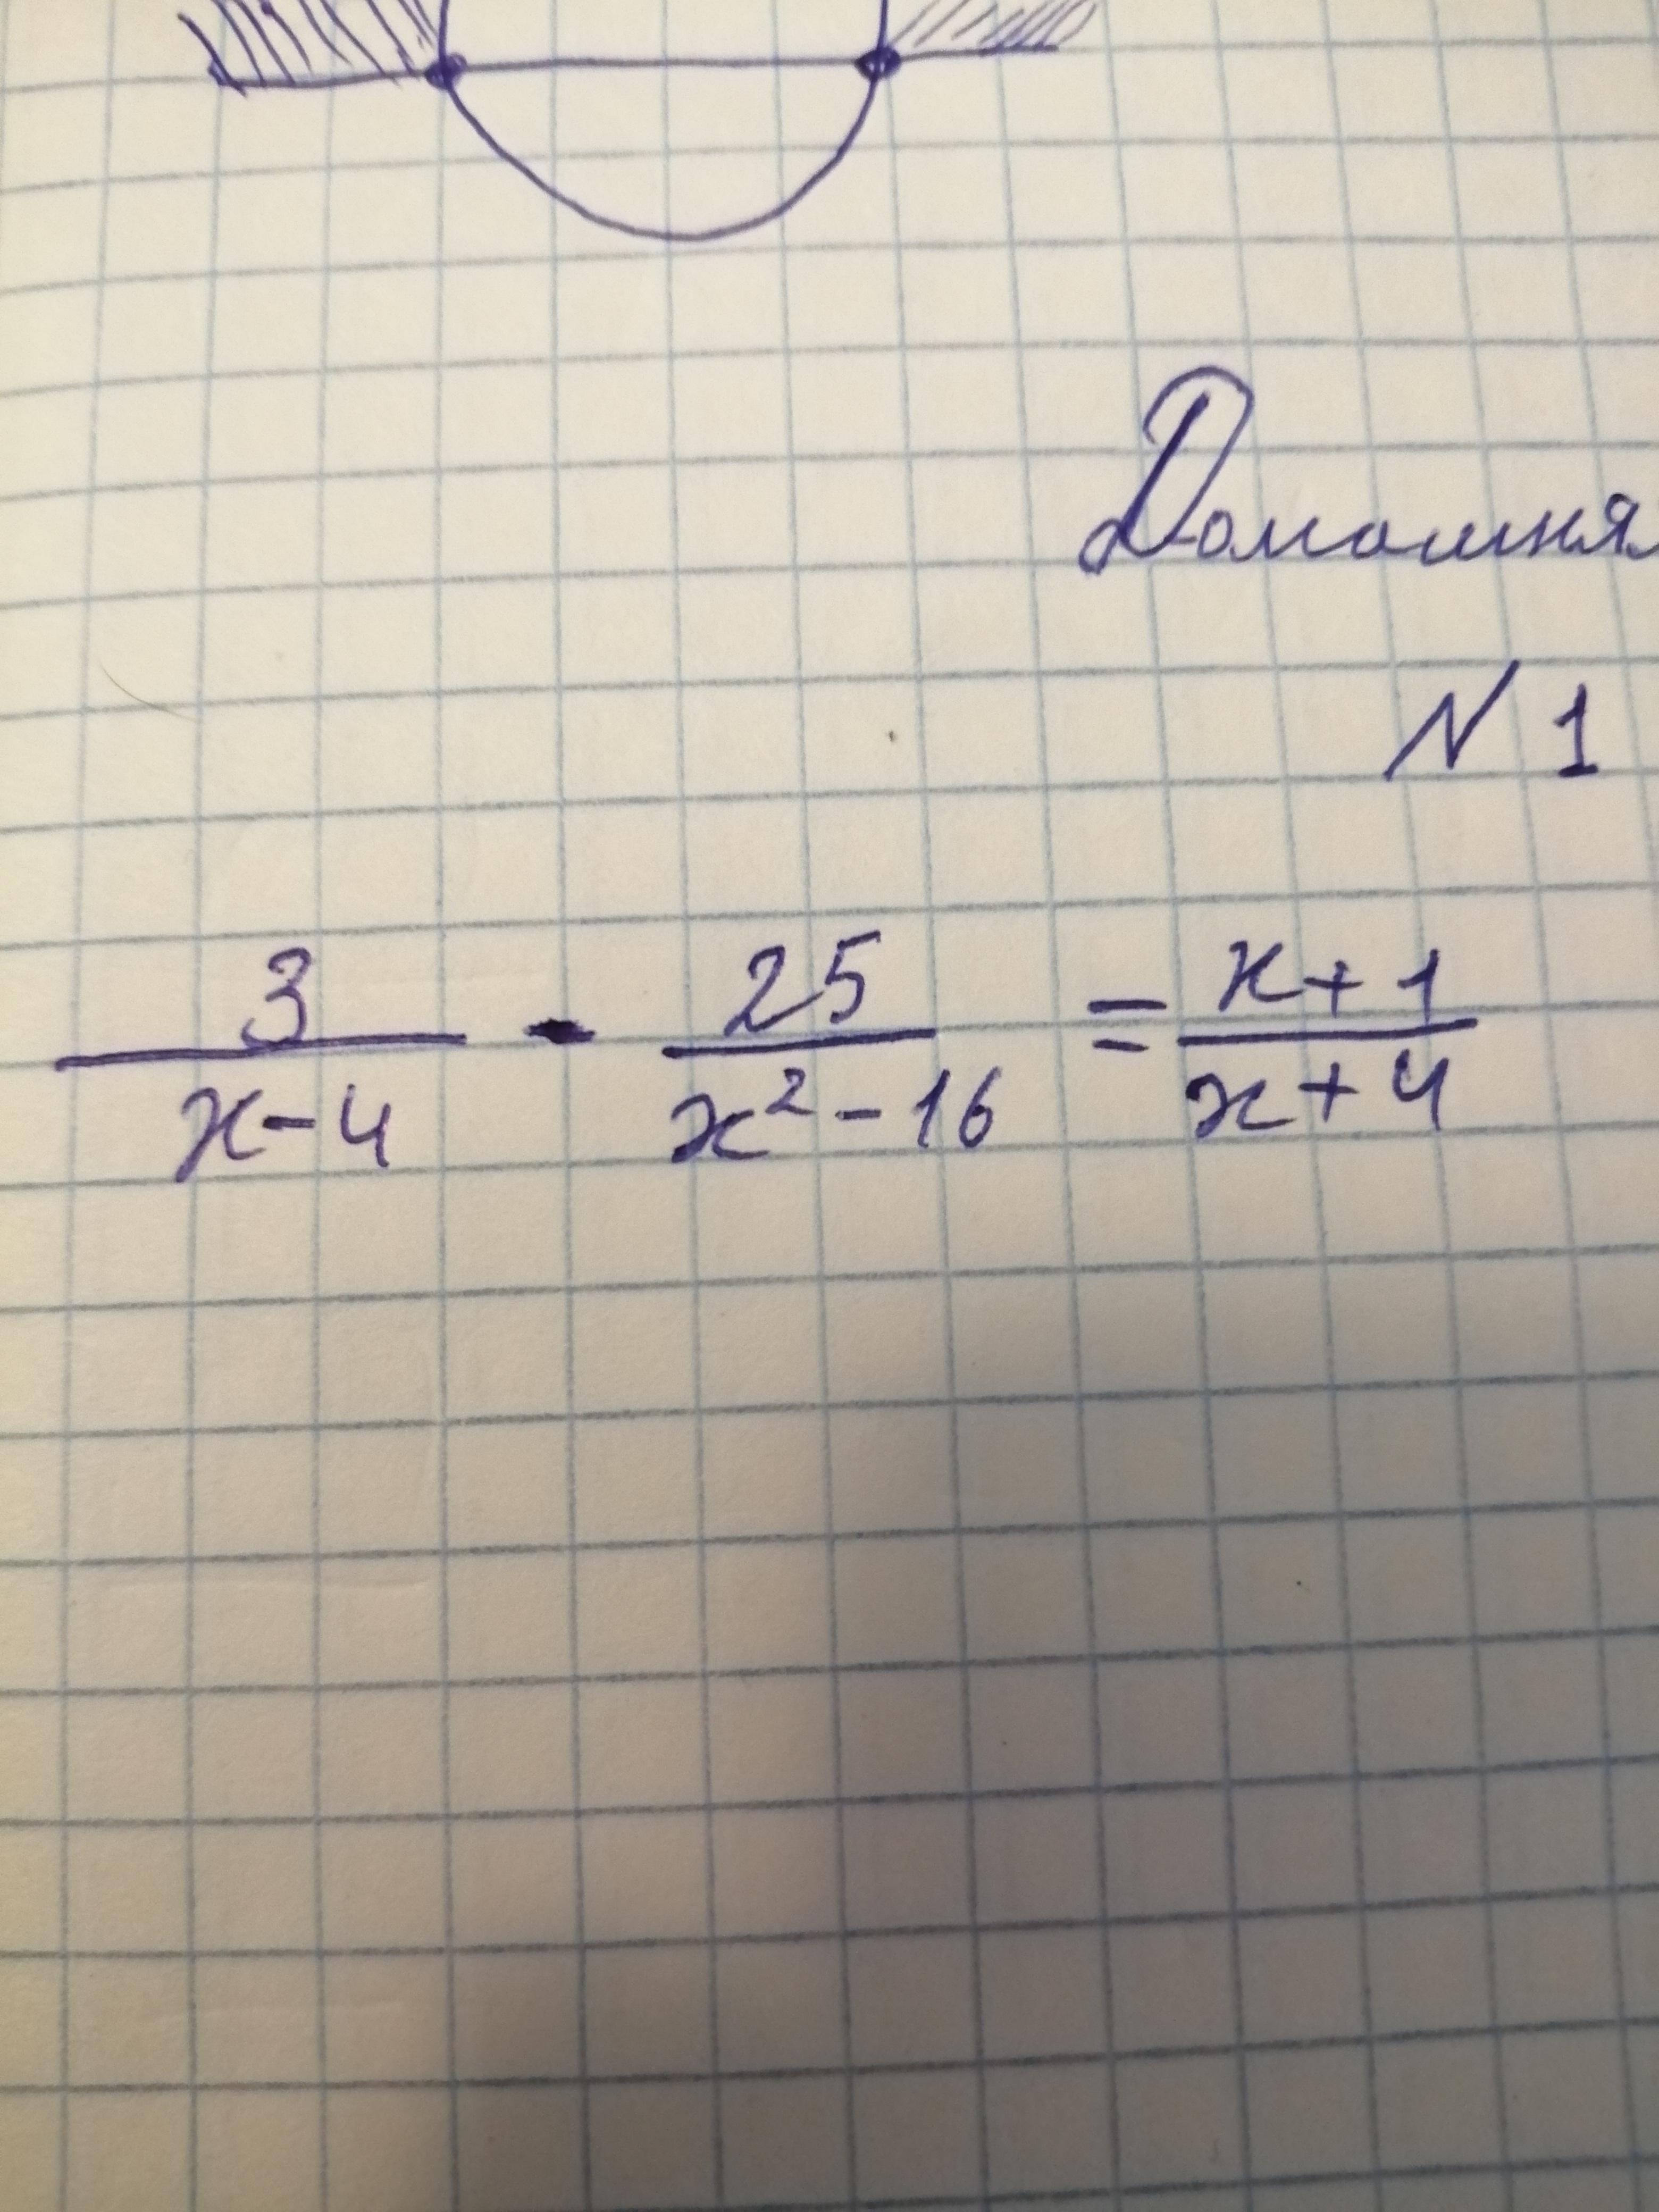 Домашняя
N 1
3/(x-4) - 25/(x²-16) = (x+1)/(x+4)